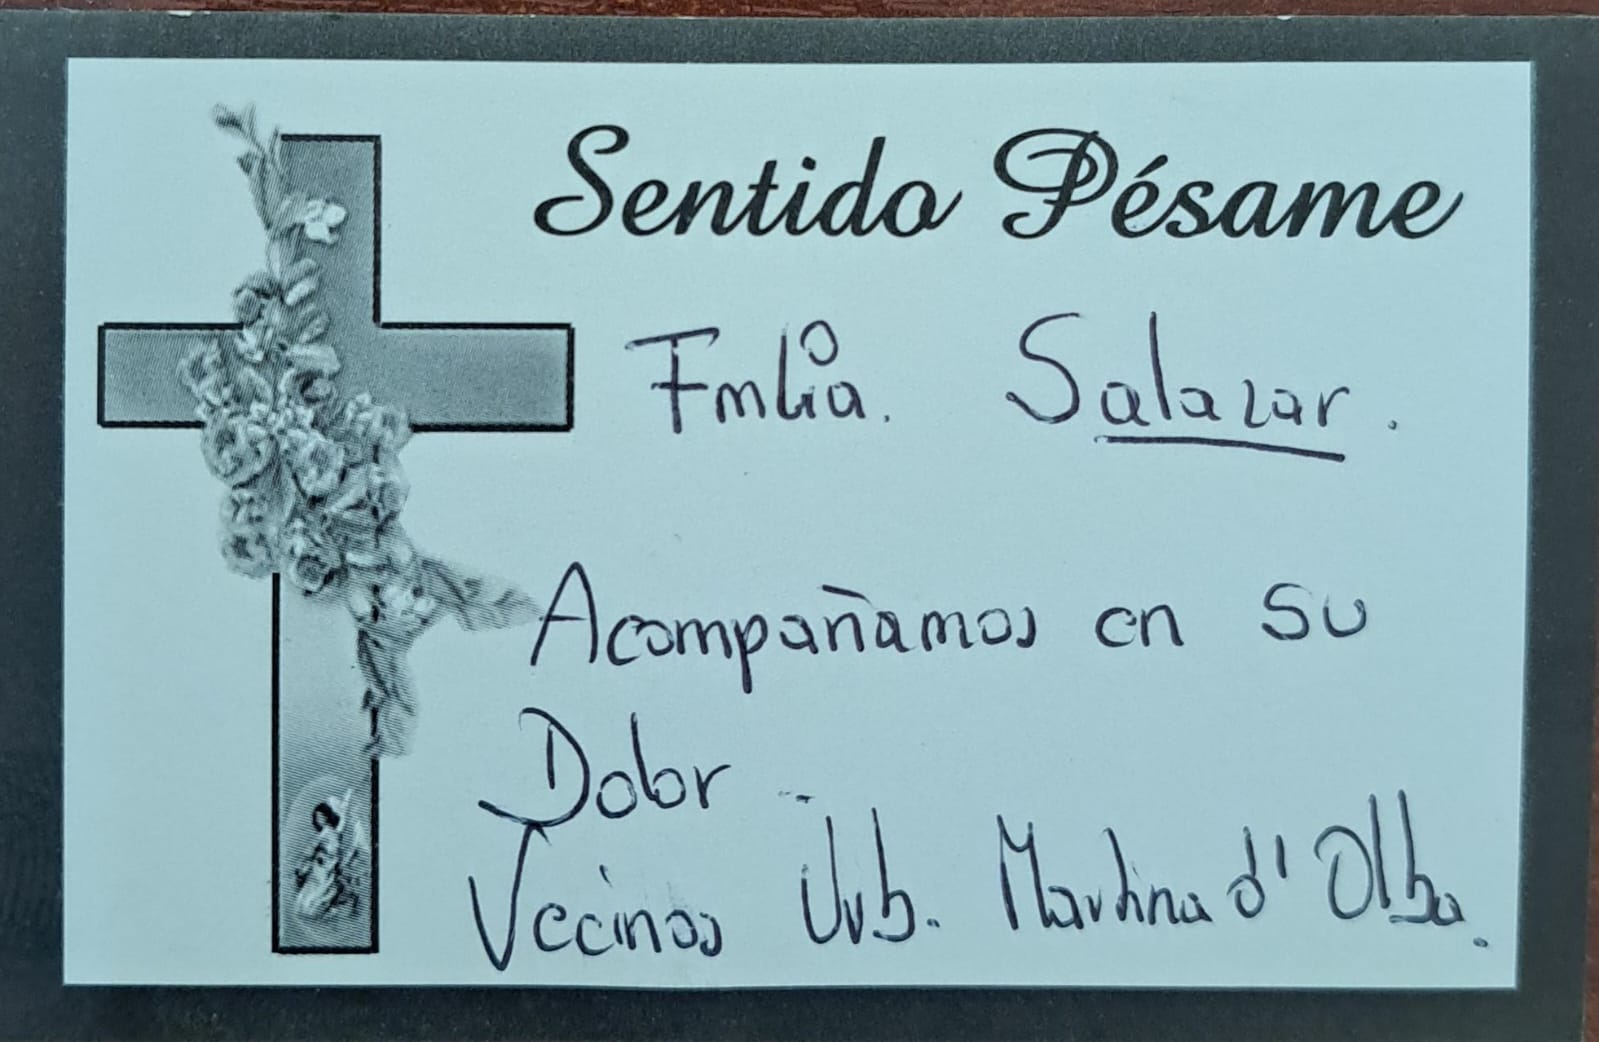 Sentido Pésame
Fmlia. Salazar.
Acompañamos en su
Dolor..
Vecinos Urb. Martina d' Olba.